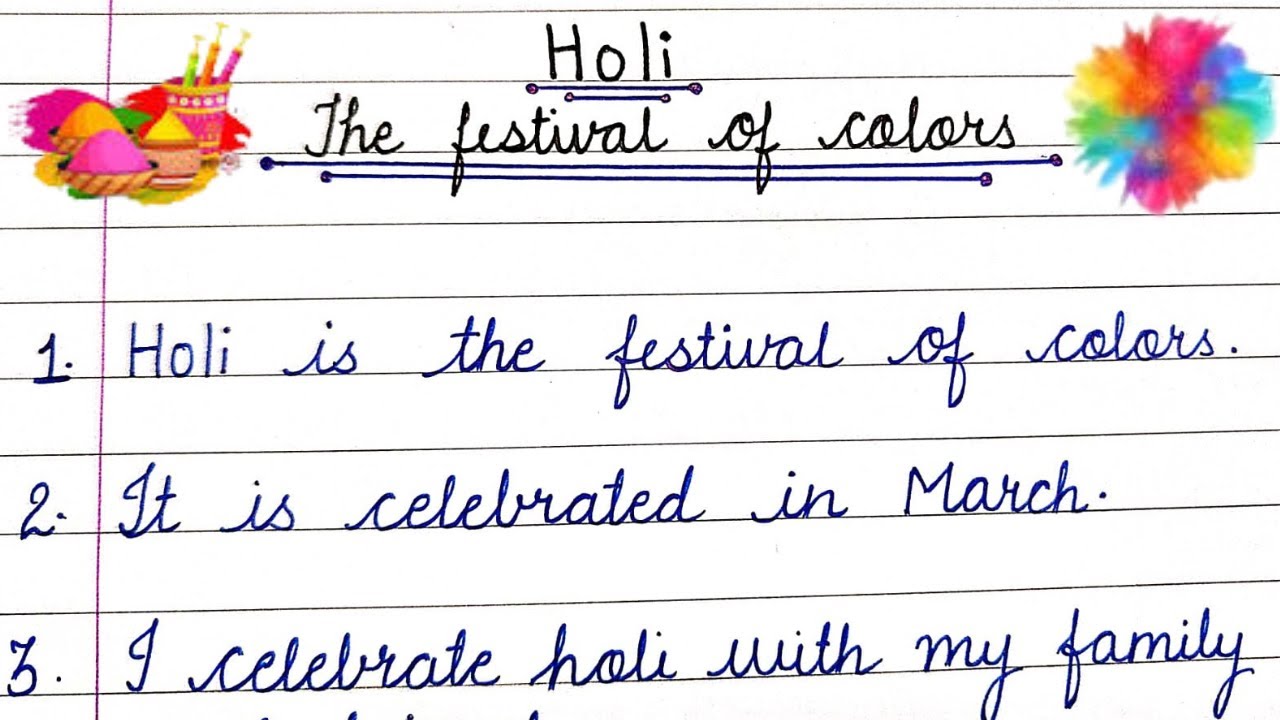 Holi
The festival of colors
1. Holi is the festival of colors.
2. It is celebrated in March.
3. I celebrate holi with my family